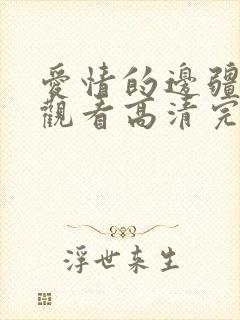 愛情的邊疆
觀看高清完
浮世来生